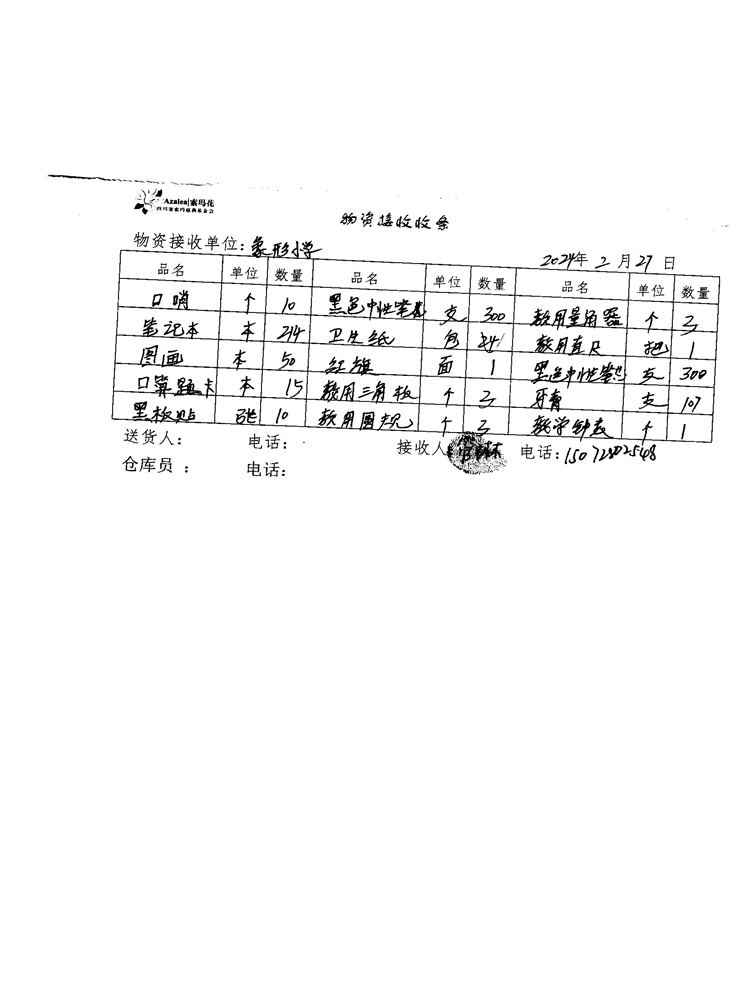 Azalea|索玛花
物资接收收条
物资接收单位：象形小学 2024年2月27日
品名 单位 数量 品名 单位 数量 品名 单位 数量
口哨 个 10 黑色中性笔 支 300 教用量角器 个 3
笔记本 本 214 卫生纸 包 教用直尺 把 1
图画 本 50 红旗 面 1 黑色中性笔芯 支 300
口算题卡 本 15 教用三角板 个 3 牙膏 支 107
黑板贴 张 10 教用圆规 个 3 教学钟表 个 1
送货人： 电话： 接收人 电话：15072802548
仓库员： 电话：